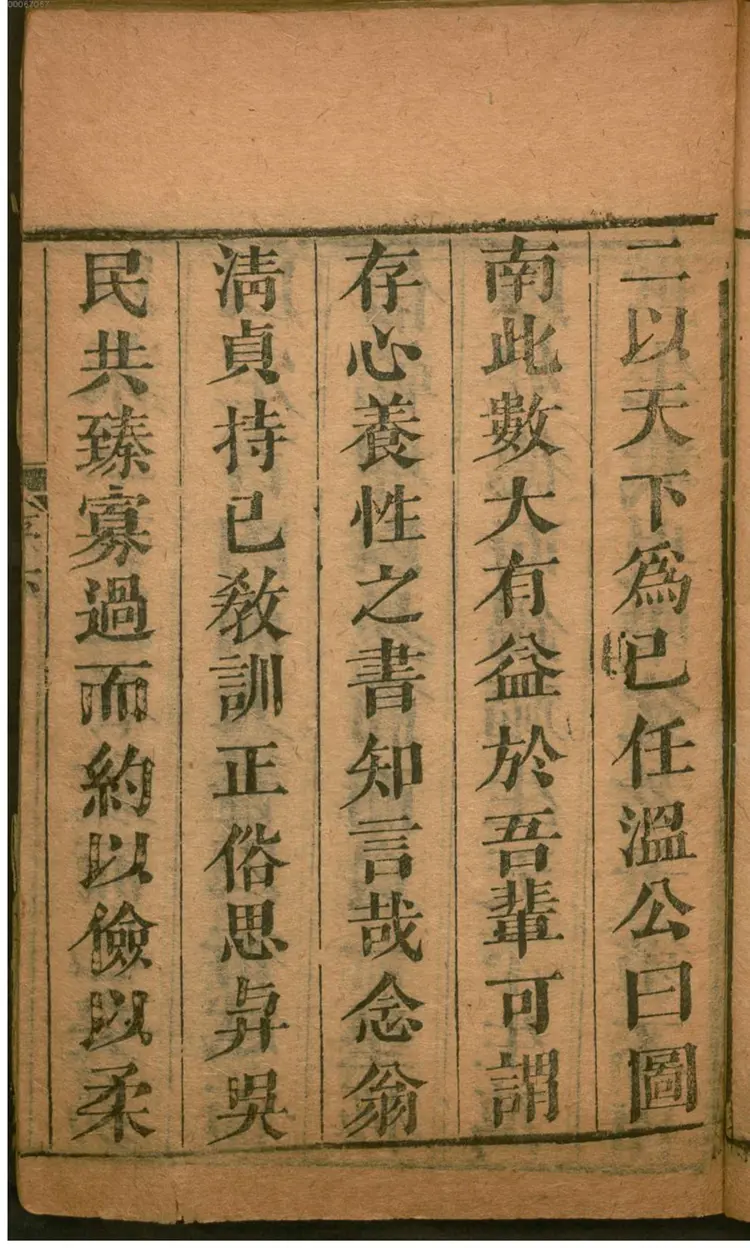 二以天下爲已任溫公曰圖
南此數大有益於吾輩可謂
存心養性之書知言哉念翁
淸貞持已敎訓正俗思與吳
民共臻寡過而約以儉以柔
00067087